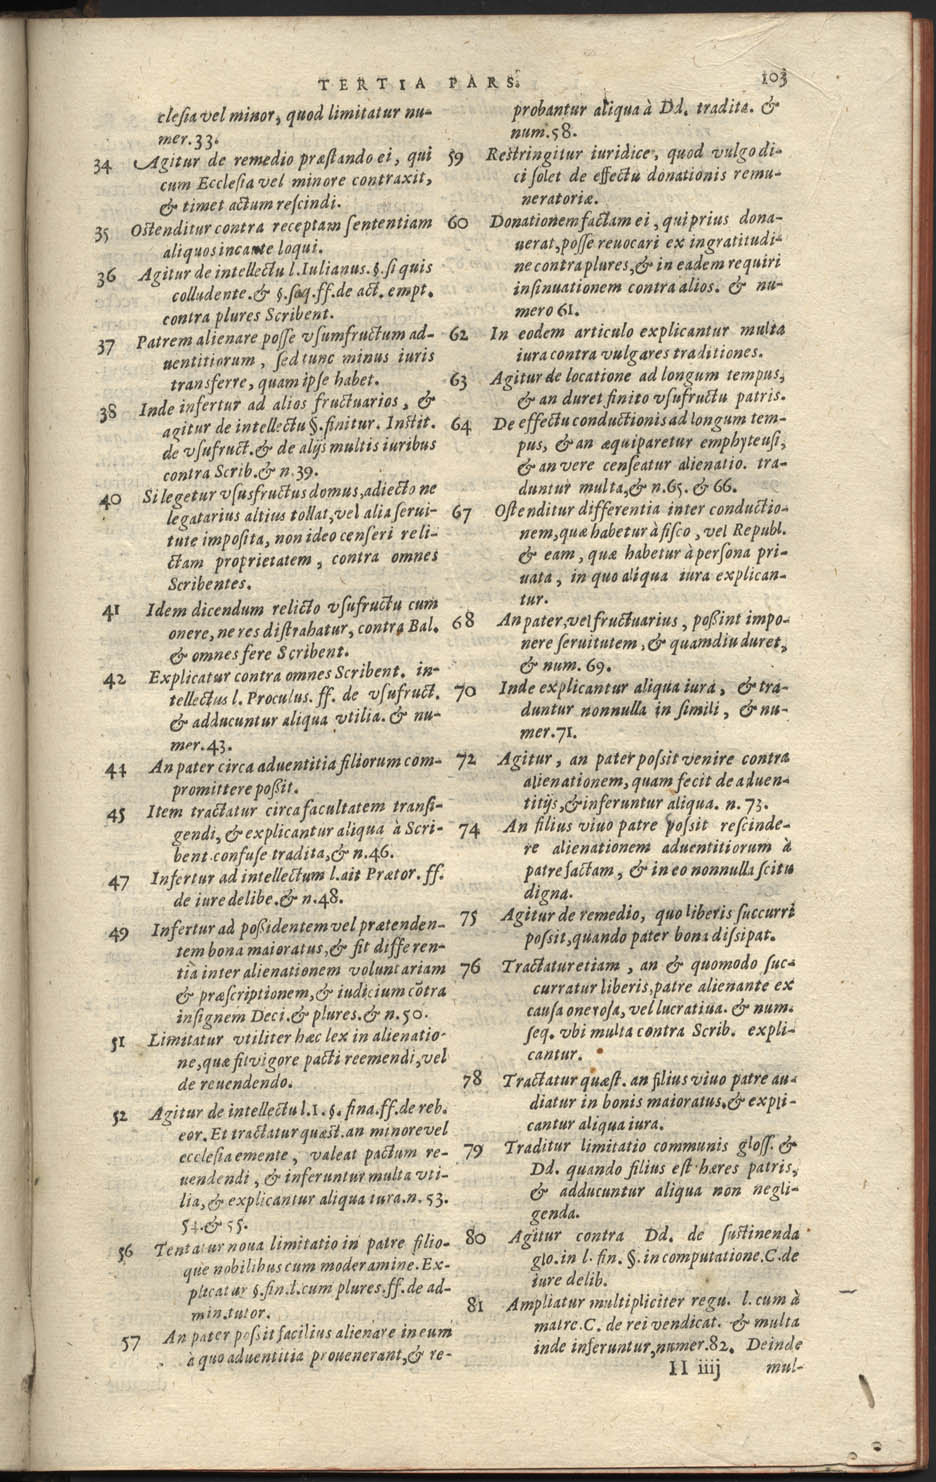 TERTIA PARS.
103
clesia vel minor, quod limitatur nu-
mer.33.
34 Agitur de remedio præstando ei, qui
cum Ecclesia vel minore contraxit,
& timet actum rescindi.
35 Ostenditur contra receptam sententiam
aliquos incaute loqui.
36 Agitur de intellectu l.Iulianus.§.si quis
colludente.& §.seq.ff.de act. empt.
contra plures Scribent.
37 Patrem alienare posse vsumfructum ad-
uentitiorum, sed tunc minus iuris
transferre, quam ipse habet.
38 Inde infertur ad alios fructuarios, &
agitur de intellectu §.finitur. Instit.
de vsufruct.& de alijs multis iuribus
contra Scrib.& n.39.
40 Si legetur vsusfructus domus, adiecto ne
legatarius altius tollat, vel alia serui-
tute imposita, non ideo censeri reli-
ctam proprietatem, contra omnes
Scribentes.
41 Idem dicendum relicto vsufructu cum
onere, ne res distrahatur, contra Bal.
& omnes fere Scribent.
42 Explicatur contra omnes Scribent. in-
tellectus l. Proculus. ff. de vsufruct.
& adducuntur aliqua vtilia. & nu-
mer.43.
44 An pater circa aduentitia filiorum com-
promittere poßit.
45 Item tractatur circa facultatem transi-
gendi, & explicantur aliqua à Scri-
bent confuse tradita,& n.46.
47 Infertur ad intellectum l.ait Prætor. ff.
de iure delibe.& n.48.
49 Infertur ad poßidentem vel prætenden-
tem bona maioratus,& fit differen-
tia inter alienationem voluntariam
& præscriptionem,& iudicium cõtra
insignem Deci.& plures.& n.50.
51 Limitatur vtiliter hæc lex in alienatio-
ne, quæ fit vigore pacti reemendi, vel
de reuendendo.
52 Agitur de intellectu l.1.§.fina.ff.de reb.
eor. Et tractatur quæst.an minore vel
ecclesia emente, valeat pactum re-
uendendi, & inferuntur multa vti-
lia,& explicantur aliqua iura.n.53.
54.& 55.
56 Tentatur noua limitatio in patre filio-
que nobilibus cum moderamine. Ex-
plicatur §.fin.l.cum plures.ff.de ad-
min.tutor.
57 An pater poßit facilius alienare in eum
à quo aduentitia prouenerant,& re-
probantur aliqua à Dd. tradita. &
num.58.
59 Restringitur iuridice, quod vulgo di-
ci solet de effectu donationis remu-
neratoriæ.
60 Donationem factam ei, qui prius dona-
uerat, posse reuocari ex ingratitudi-
ne contra plures,& in ea dem requiri
insinuationem contra alios. & nu-
mero 61.
62 In eodem articulo explicantur multa
iura contra vulgares traditiones.
63 Agitur de locatione ad longum tempus,
& an duret finito vsufructu patris.
64 De effectu conductionis ad longum tem-
pus, & an æquiparetur emphyteusi,
& an vere censeatur alienatio. tra-
duntur multa,& n.65. & 66.
67 Ostenditur differentia inter conductio-
nem, quæ habetur à fisco, vel Republ.
& eam, quæ habetur à persona pri-
uata, in quo aliqua iura explican-
tur.
68 An pater, vel fructuarius, poßint impo-
nere seruitutem, & quamdiu duret,
& num. 69.
70 Inde explicantur aliqua iura, & tra-
duntur nonnulla in simili, & nu-
mer.71.
72 Agitur, an pater possit venire contra
alienationem, quam fecit de aduen-
titijs,& inferuntur aliqua. n. 73.
74 An filius viuo patre possit rescinde-
re alienationem aduentitiorum à
patre factam, & in eo nonnulla scitu
digna.
75 Agitur de remedio, quo liberis succurri
possit, quando pater bona dissipat.
76 Tractatur etiam, an & quomodo suc-
curratur liberis, patre alienante ex
causa onerosa, vel lucratiua. & num.
seq. vbi multa contra Scrib. expli-
cantur.
78 Tractatur quæst. an filius viuo patre au-
diatur in bonis maioratus.& expli-
cantur aliqua iura.
79 Traditur limitatio communis gloss. &
Dd. quando filius est hæres patris,
& adducuntur aliqua non negli-
genda.
80 Agitur contra Dd. de sustinenda
glo.in l. fin. §.in computatione.C.de
iure delib.
81 Ampliatur multipliciter regu. l. cum à
matre.C. de rei vendicat. & multa
inde inferuntur, numer.82. Deinde
II iiij
mul-